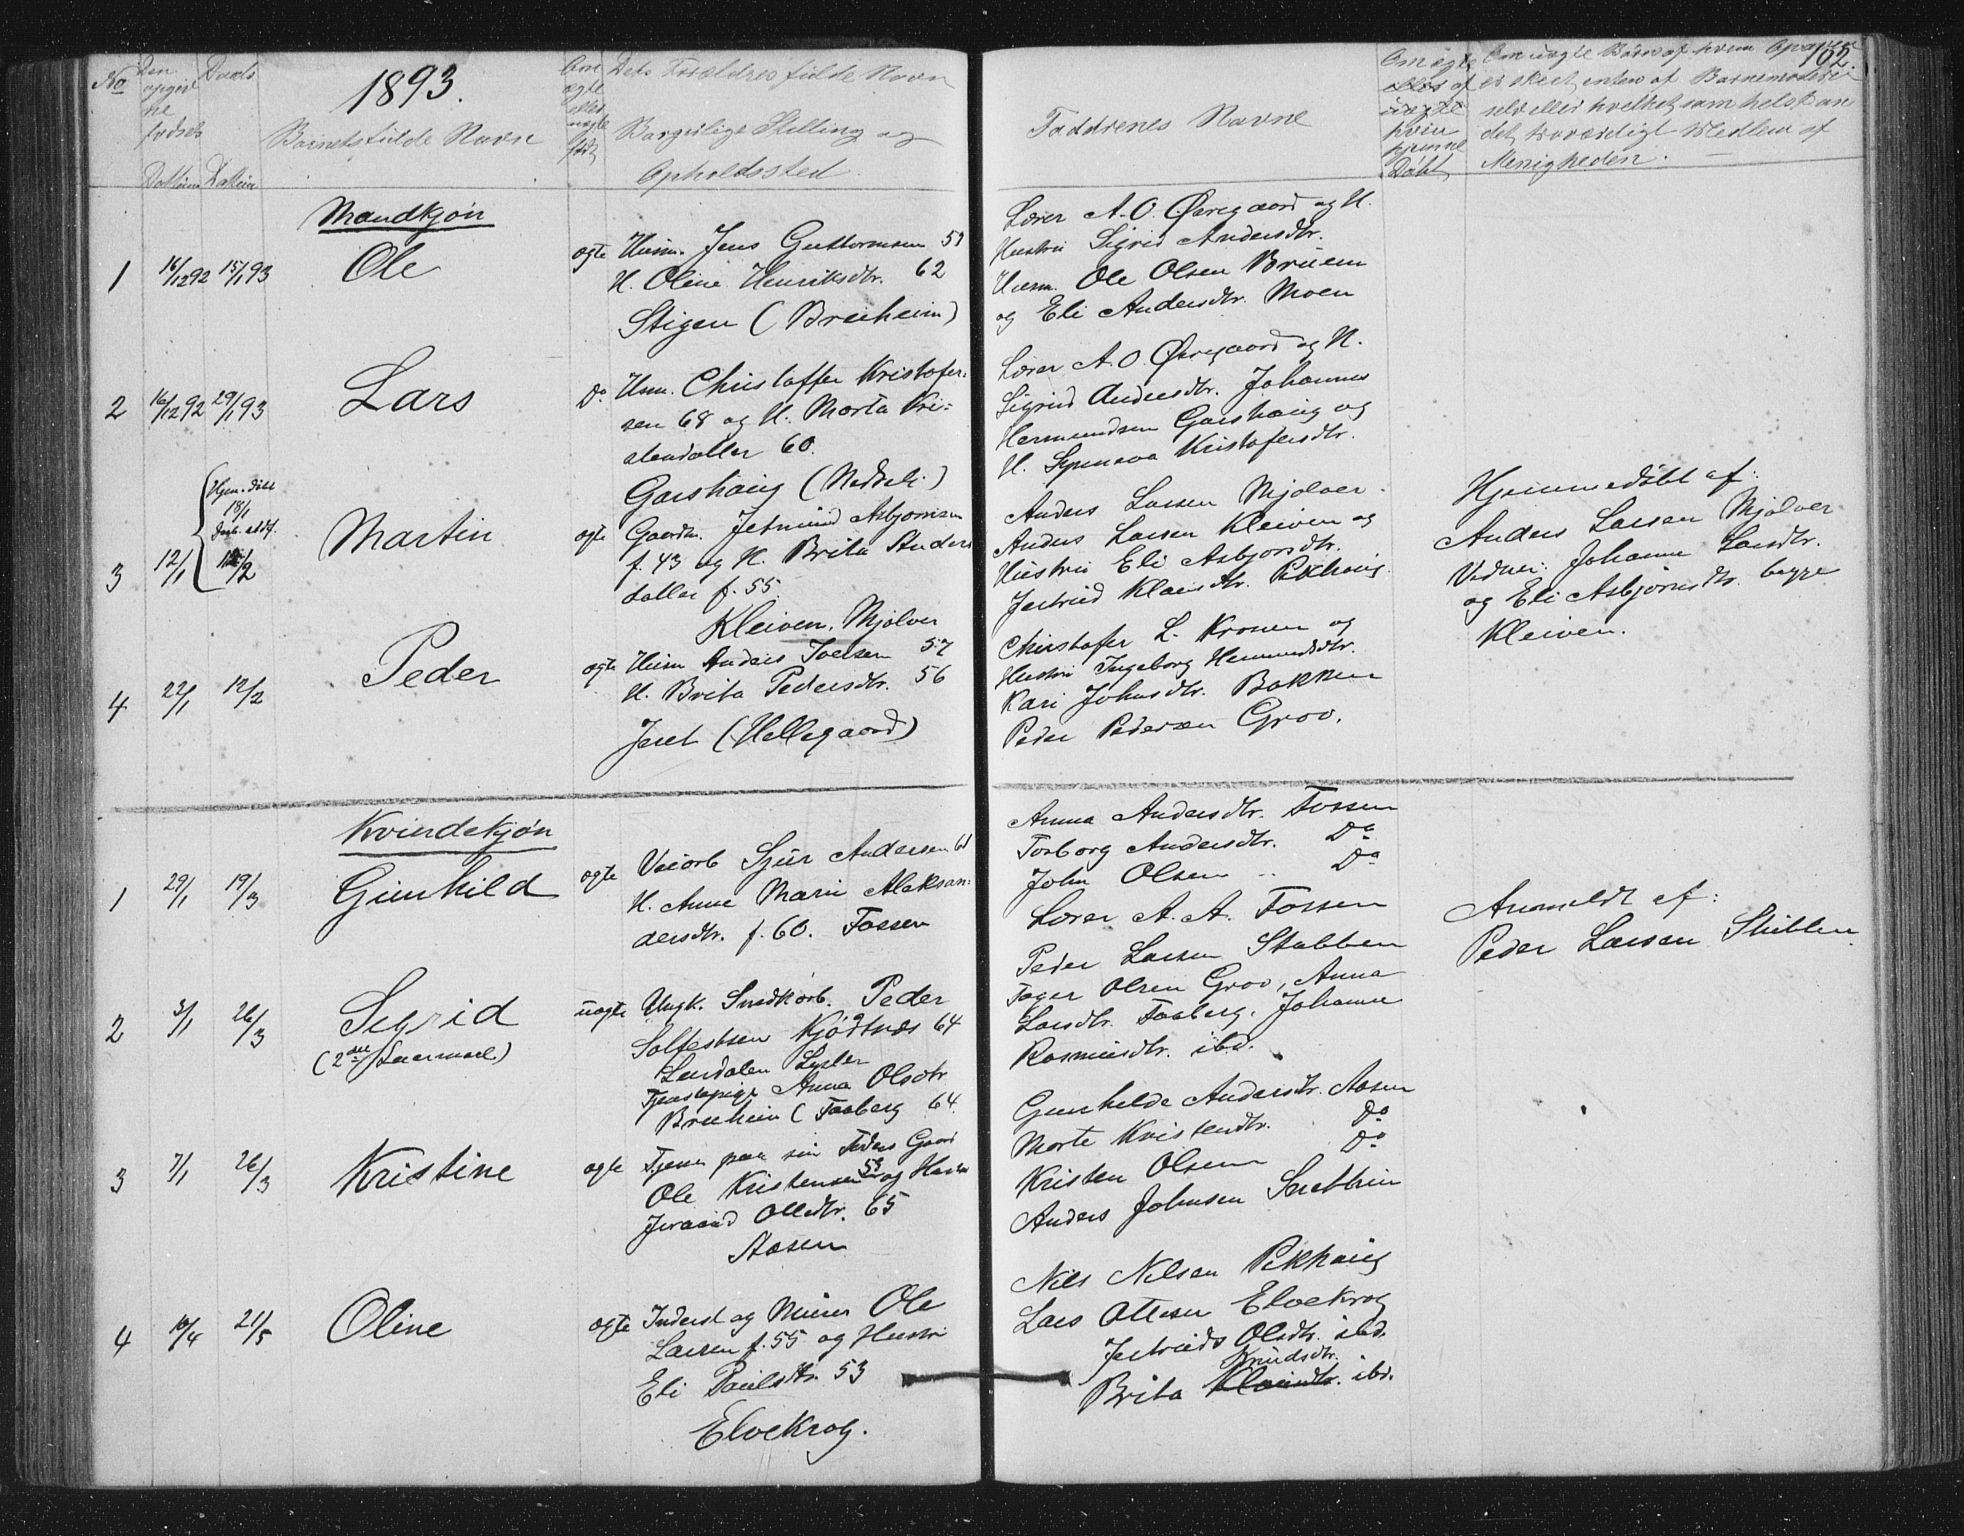 102.
No
Den opgivne fødsels Dattum
Daabs Dattum
1893.
Barnets fulde Navn
Om ægte eller uægte født
Dets Forældres fulde Navn
Borgerlige Stilling og
Opholdssted.
Faddrenes Navne
Om ægte Børn af hvem
er skeet enten af Barnemoderen
selv eller hvilket som helst an
det troværdigt Medlem af
Menigheden.
Mandkjøn
1 16/12 92 15/1 93 Ole
ægte Husm. Jens Guttormsen 51
H. Oline Henriksdtr. 62
Stigen (Breiheim)
Lærer A. O. Øvregaard og H.
Hustru Sigrid Andersdtr.
Husm. Ole Olsen Bruem
og Eli Andersdtr. Moen
2 16/12 92 29/1 93 Lars
Do Husm. Christoffer Kristofer-
sen 68 og H. Marta Kri-
stendatter 60.
Garshaug (Nedreli)
Lærer A. O. Øvregaard og H.
Sigrid Andersdtr. Johannes
Hermundsen Garshaug og
H. Synneva Kristofersdtr.
3 12/1 Hjem. døbt
18/1
12/2 Martin
ægte Gaardm. Jetmund Asbjørnsen
f. 43 og H. Brita Anders
datter f. 55.
Kleiven, Mjølver
Anders Larsen Mjølver
Anders Larsen Kleiven og
Hustru Eli Asbjørsdtr.
Jertrud Klausdtr. Pikhaug
Hjemmedøbt af:
Anders Larsen Mjølver
Vidner: Johanne Larsdtr.
og Eli Asbjørnsdtr. begge
Kleiven.
4 22/1 12/2 Peder
ægte Husm Anders Iversen 57
H. Brita Pedersdtr. 56
Jeret (Hellegaard)
Christofer L. Kronen og
Hustru Ingeborg Hermundsdtr.
Kari Johnsdtr. Bakken
Peder Pedersen Grov.
Kvindekjøn
1 29/1 19/3 Gunhild
ægte Veiarb Sjur Andersen 61
H. Anne Marie Aleksan-
dersdtr. f. 60. Fossen
Anna Andersdtr. Fossen
Torborg Andersdtr. Do
John Olsen .. Do
Lærer A. A. Fossen
2 3/1 26/3 Sigrid
(2den Leiermaal)
uægte Ungk. Snedkerarb. Peder
Solfestsen Kjødtnæs 64
Leirdalen Lyster
Tjenestepige Anna Olsdtr
Breiheim (Faaberg 64.
Peder Larsen Stubben
Tøger Olsen Grov, Anna
Larsdtr. Faaberg, Johanne
Rasmusdtr. ibd.
Anmeldt af:
Peder Larsen Stubben
3 7/1 26/3 Kristine
ægte Tjener paa sin Faders Gaard
Ole Kristensen 59 og Hustru
Jeraand Ollsdtr. 65
Aasen
Gunhilde Andersdtr. Aasen
Marte Kristendtr. Do
Kristen Olsen Do
Anders Johnsen Sætthun
4 10/4 21/5 Oline
ægte Inderst og Murer Ole
Larsen f. 55 og Hustru
Eli Paulsdtr. 53
Elvekrog.
Nils Nilsen Pikhaug
Lars Ottesen Elvekrog
Jertrud Olsdtr. ibd.
Knudsdtr.
Brita Klausdtr. ibd.